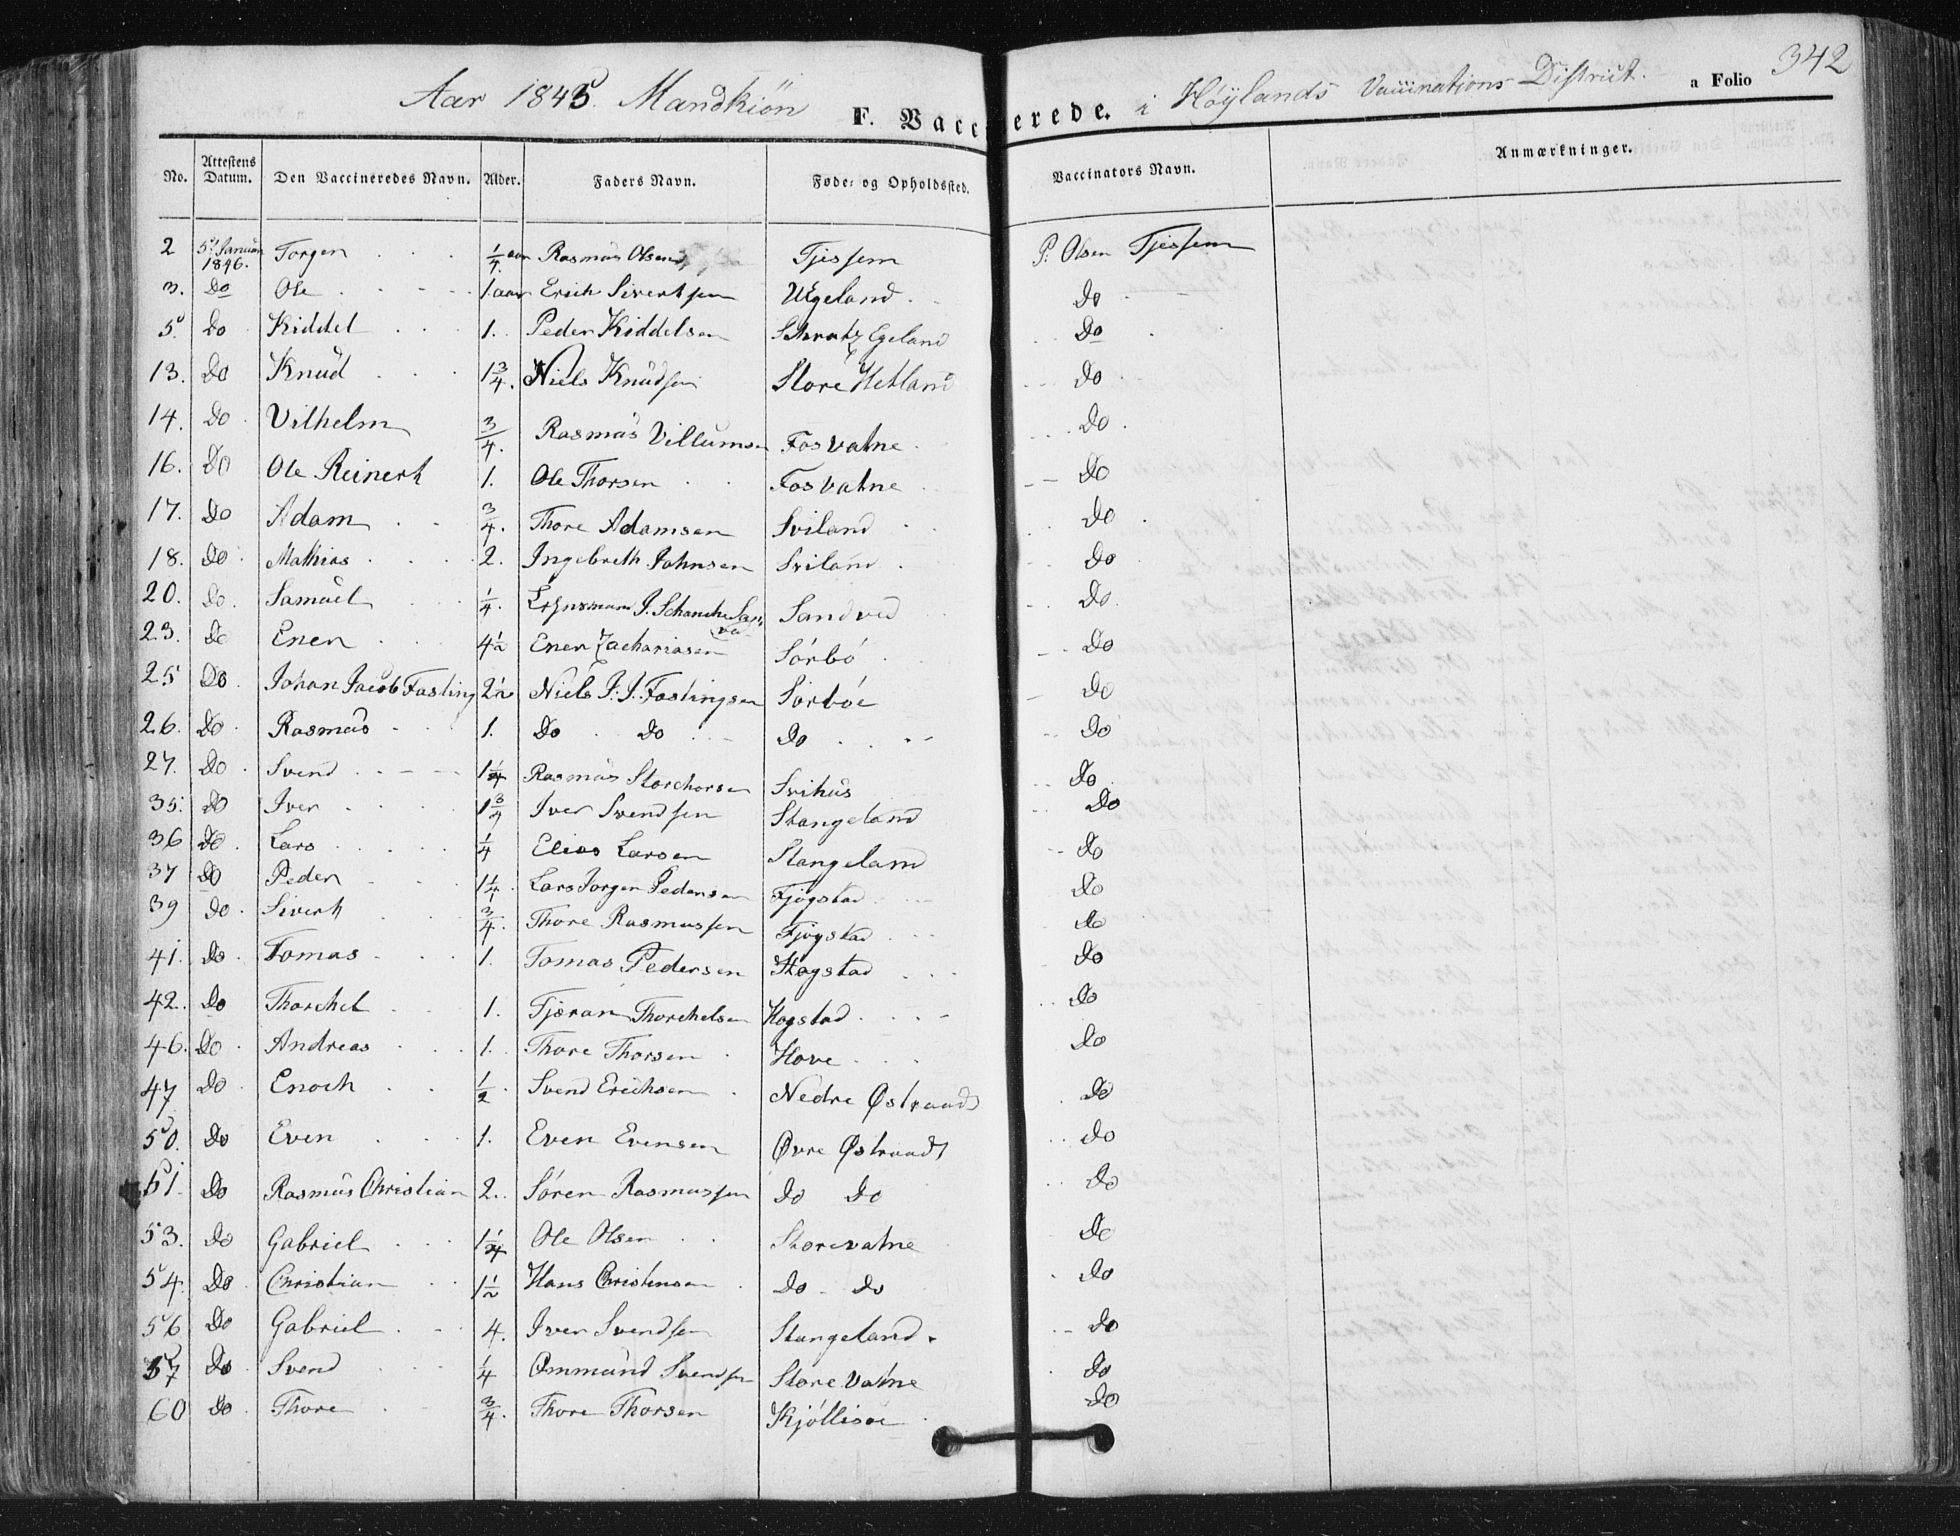 Aar 1845. Mandkiön F. Vaccinerede. i Höÿlands Vaccinations District. a Folio 342
No. Attestens Datum. Den Vaccineredes Navn. Alder. Faders Navn. Føde- og Opholdssted. Vaccinators Navn. Anmærkninger.
2 5t Januari 1846. Torger 1/4 aar Rasmus Olsen Tjessem P. Olsen Tjessem
3. Do Ole 1 aar Erich Sivertsen Uegeland Do
5. Do Kiddel 1. Peder Kiddelsen Egeland Do
13. Do Knud 1 3/4. Niels Knudsen Store Hetland Do
14. Do Vilhelm 3/4. Rasmus Villumsen Fosvatne Do
16. Do Ole Reinert 1. Ole Thorsen Fosvatne Do
17. Do Adam 3/4. Thore Adamsen Sviland Do
18. Do Mathias 2. Ingebreth Johnsen Sviland Do
20. Do Samuel 1/4. J. Schanche Sandved Do
23. Do Ener 4 1/2 Ener Zachariasen Sörbö Do
25 Do Johan Jacob Fasting 2 1/2 Niels J. J. Fastingsen Sörböe Do
26. Do Rasmus 1. Do Do Do Do
27. Do Svend 1 1/4 Rasmus Storchorsen Svihus Do
35. Do Iver 1 3/4 Iver Svendsen Stangeland Do
36 Do Lars 1/4 Elias Larsen Stangeland Do
37 Do Peder 1 1/4 Lars Torger Pedersen Fjogstad Do
39 Do Sivert 3/4. Thore Rasmussen Fjogstad Do
41. Do Tomas 1. Tomas Pedersen Hogstad Do
42. Do Thorchel 1. Tjeran Thorchelsen Hogstad Do
46. Do Andreas 1. Thore Thorsen Hove Do
47 Do Enoch 1/2 Svend Erichsen Nedre Østraadt Do
50. Do Even 1. Even Evensen Øvre Østraadt Do
51. Do Rasmus Christian 2. Sören Rasmussen Do Do Do
53. Do Gabriel 1 1/4 Ole Olsen Storevatne Do
54. Do Christian 1 1/2 Hans Christensen Do Do Do
56 Do Gabriel 4. Iver Svendsen Stangeland Do
57 Do Svend 1/4 Ommund Svendsen Store Vatne Do
60 Do Thore 3/4. Thore Thorsen Kjöllisoe Do